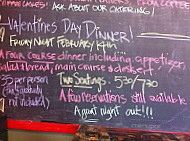 ASK ABOUT OUR CATERING!
Valentines Day Dinner!
Friday Night February 14th
A four course dinner including appetizer,
salad & bread, main course & dessert
35 per person
Two Seatings: 5:30/7:30
not included)
A few reservations still available
A great night out!!!